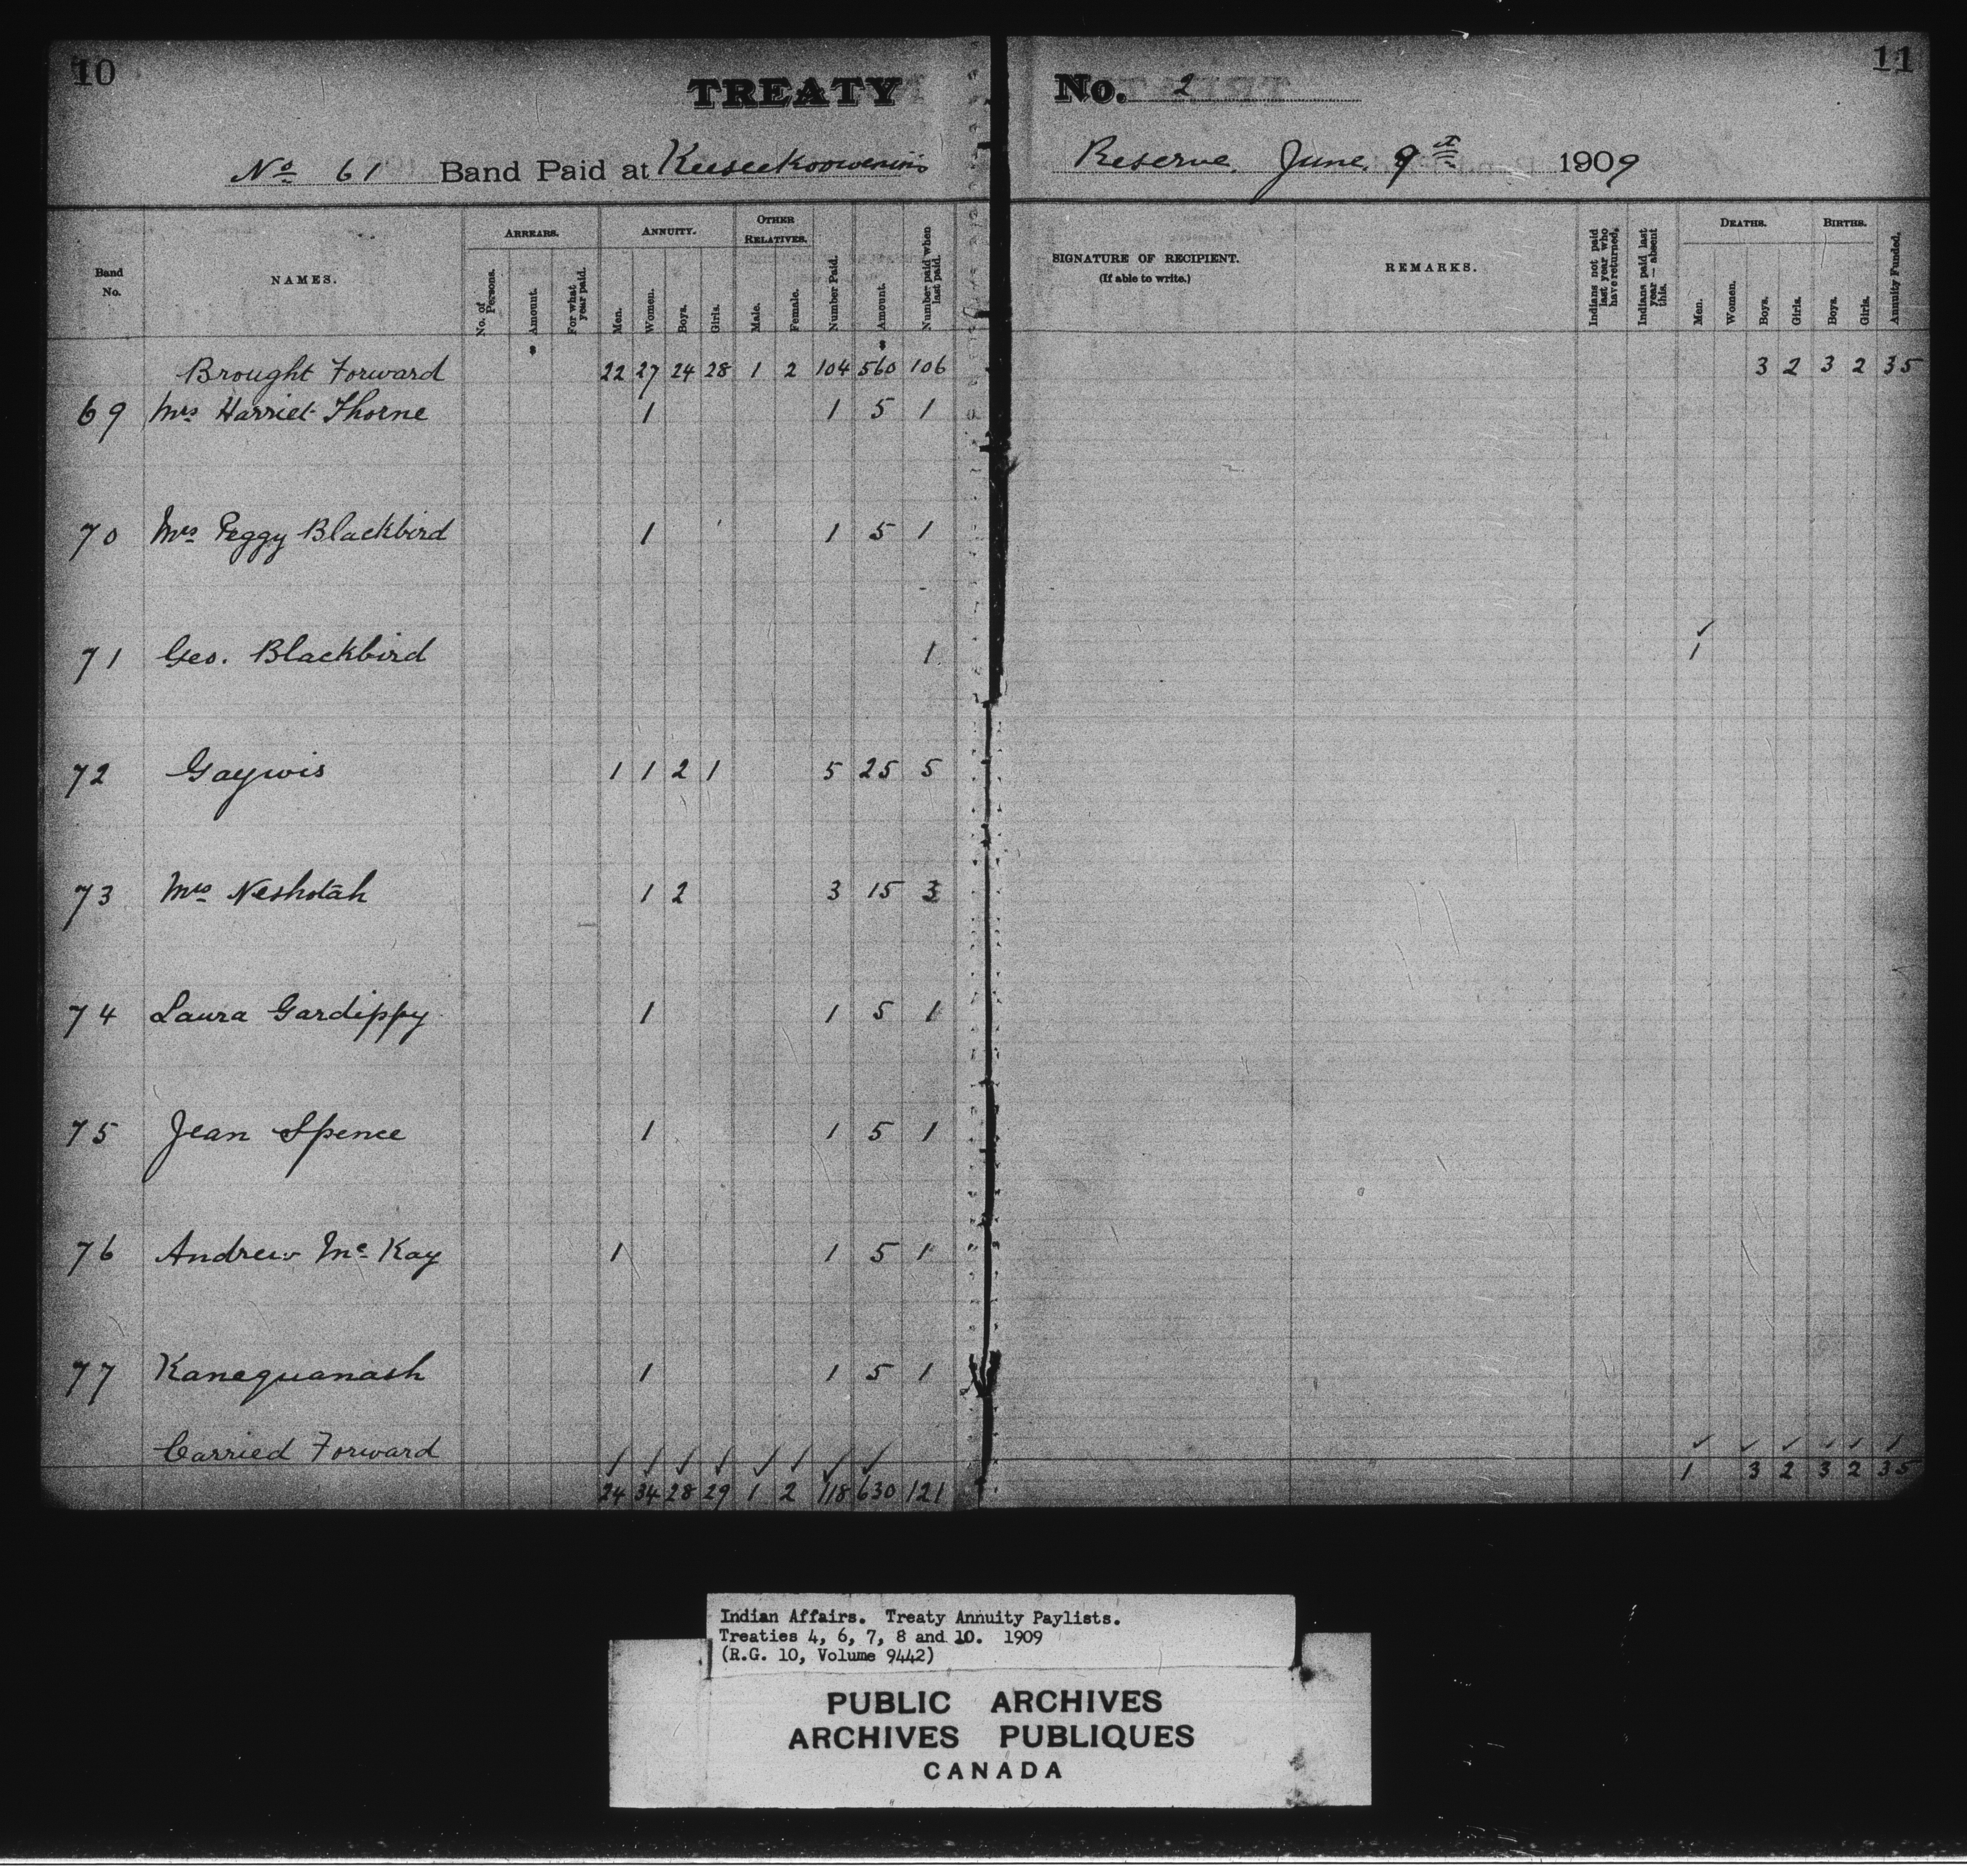 10
11
TREATY No. 2
No 61 Band Paid at Keeseekoowenin's Reserve. June 9th 1909
Band No. NAMES. ARREARS. ANNUITY. OTHER RELATIVES. SIGNATURE OF RECIPIENT. (If able to write.) REMARKS. DEATHS. BIRTHS.
No. of Persons. Amount. For what year paid. Men. Women. Boys. Girls. Male. Female. Number Paid. Amount. Number paid when last paid. Indians not paid last year who have returned. Indians paid last year — absent this. Men. Women. Boys. Girls. Boys. Girls. Annuity Funded.
Brought Forward 22 27 24 28 1 2 104 560 106 3 2 3 2 35
69 Mrs Harriet Thorne 1 1 5 1
70 Mrs Peggy Blackbird 1 1 5 1
71 Geo. Blackbird 1 ✓ 1
72 Gaywis 1 1 2 1 5 25 5
73 Mrs Neshotah 1 2 3 15 3
74 Laura Gardippy 1 1 5 1
75 Jean Spence 1 1 5 1
76 Andrew Mc Kay 1 1 5 1
77 Kanequanash 1 1 5 1
Carried Forward ✓ ✓ ✓ ✓ ✓ ✓ ✓ ✓ ✓ ✓ ✓ ✓ ✓ ✓
24 34 28 29 1 2 118 630 121 1 3 2 3 2 35
Indian Affairs. Treaty Annuity Paylists.
Treaties 4, 6, 7, 8 and 10. 1909
(R.G. 10, Volume 9442)
PUBLIC ARCHIVES
ARCHIVES PUBLIQUES
CANADA